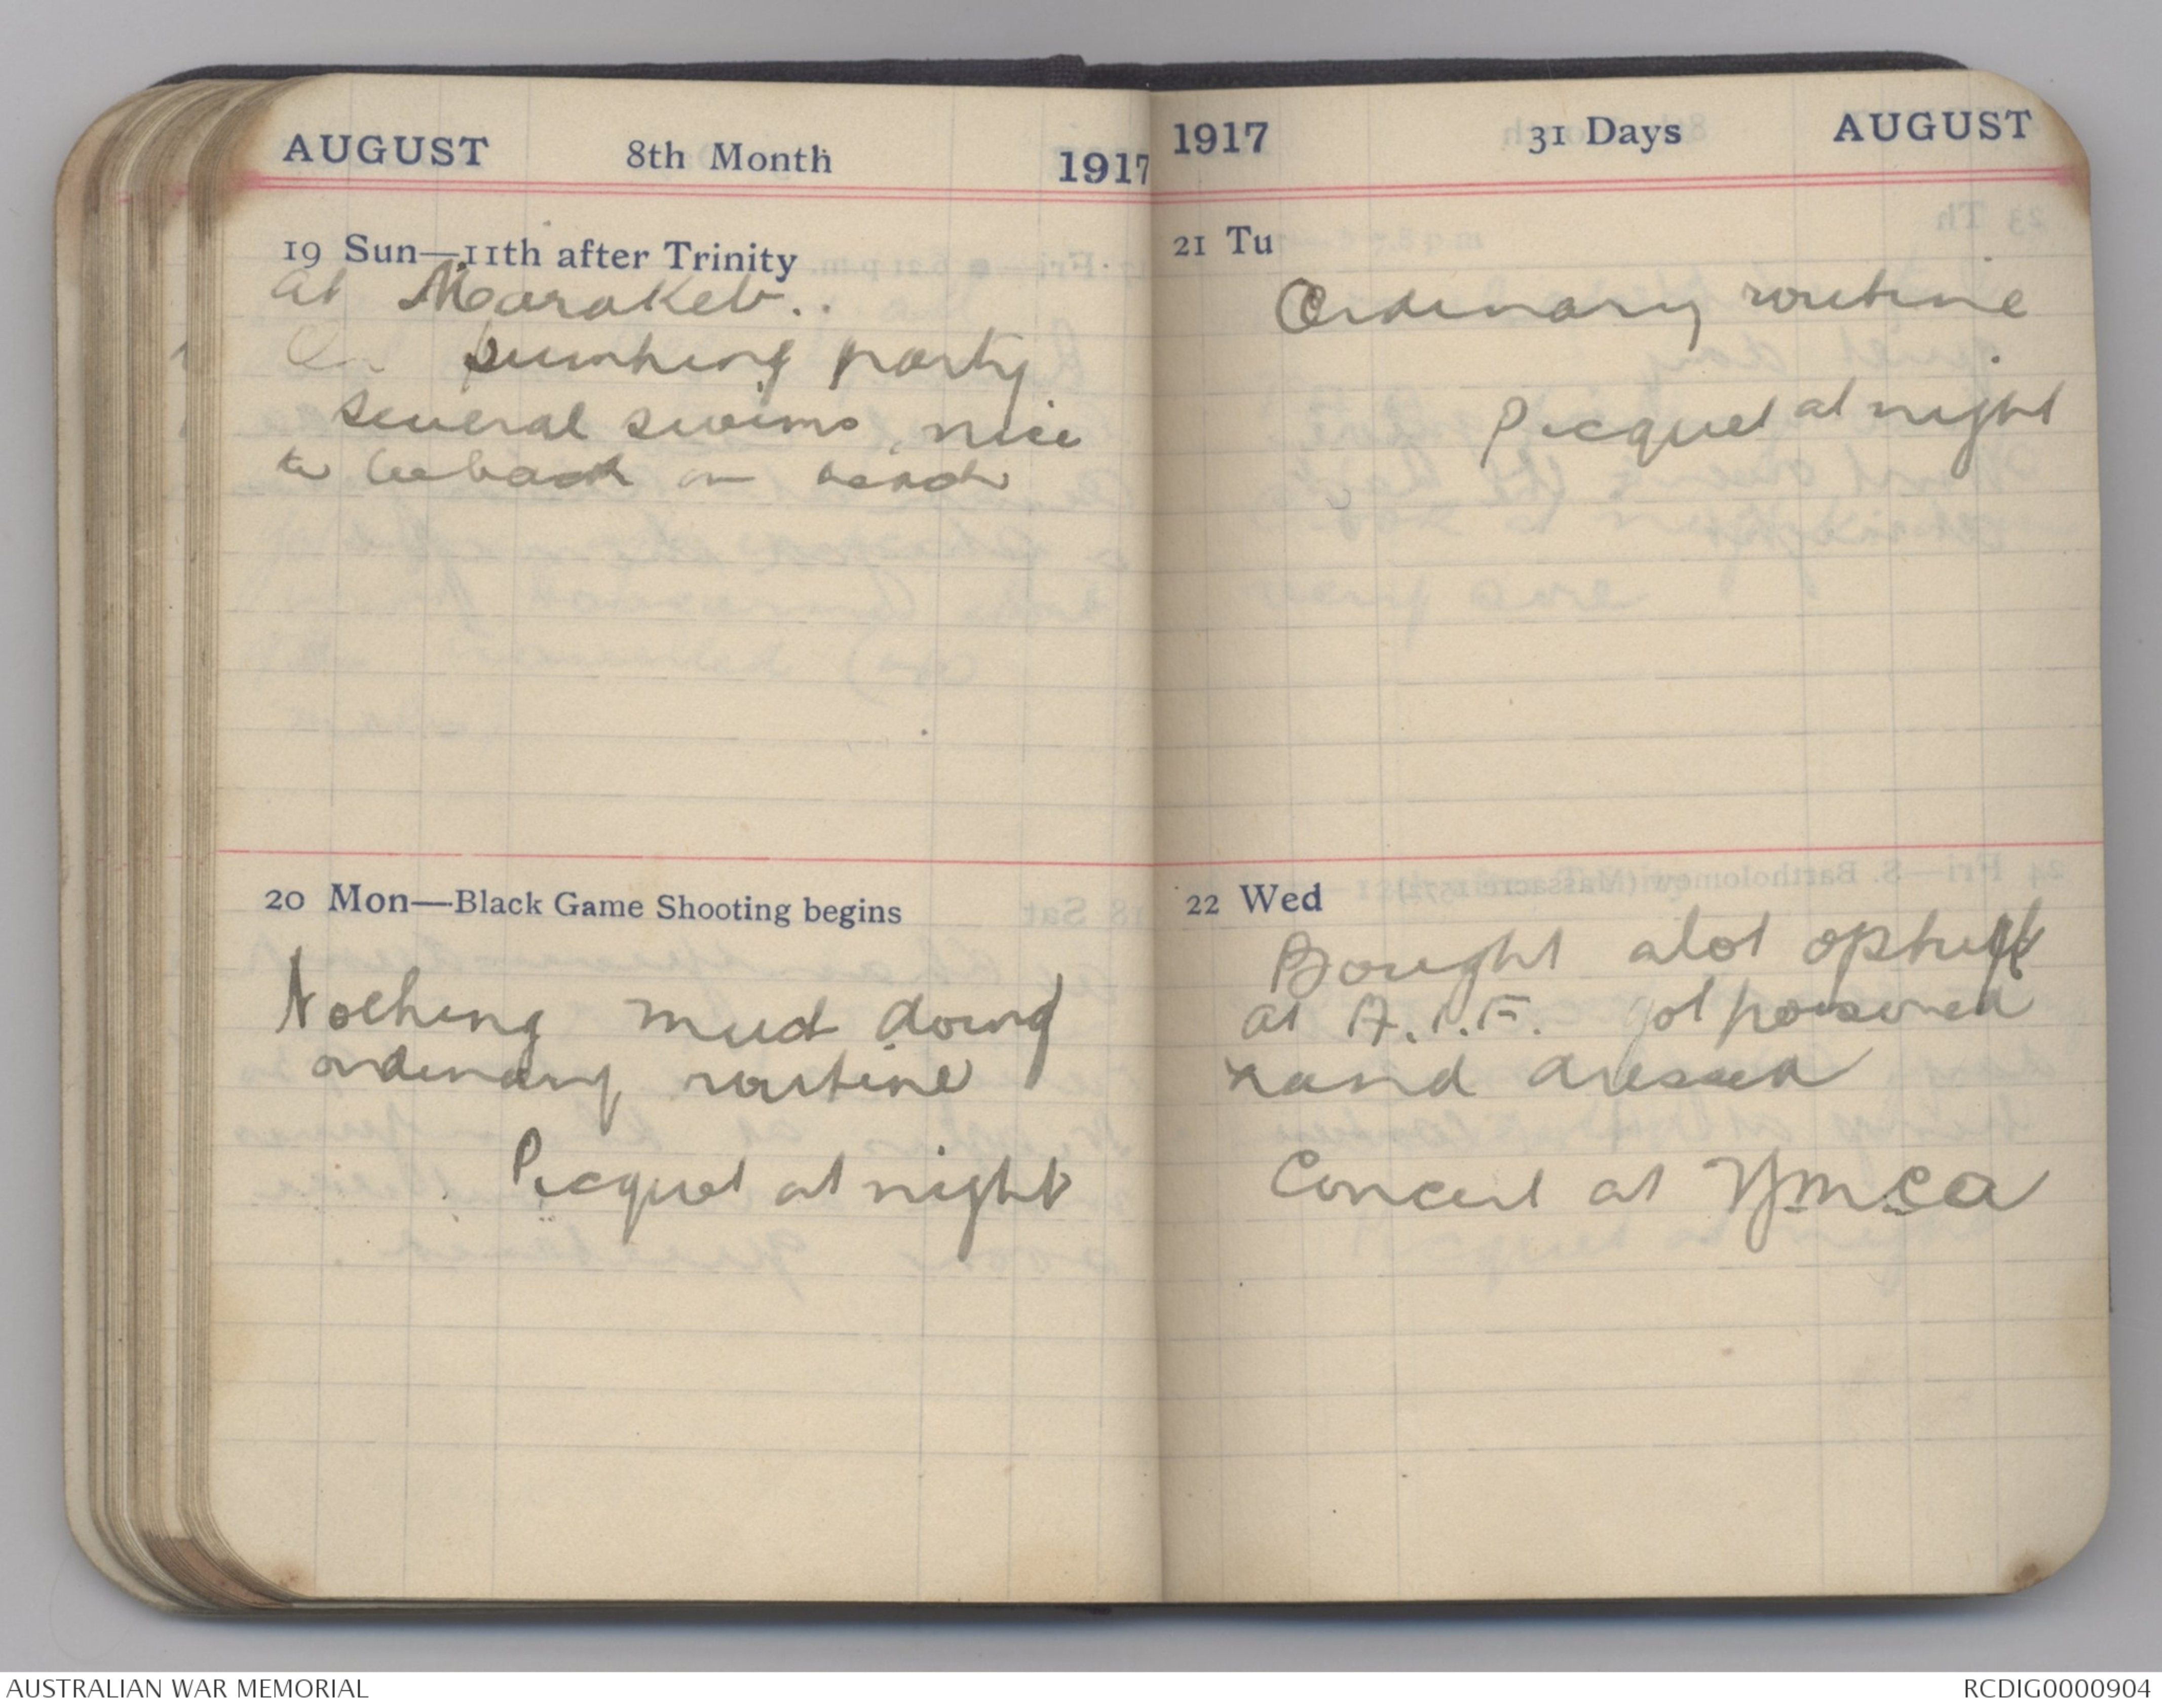 AUGUST 8th Month 1917
19 Sun—11th after Trinity
at Marakeb..
On pumping party
several swims, nice
to be back on beach
20 Mon—Black Game Shooting begins
Nothing much doing
ordinary routine
Picquet at night
1917 31 Days AUGUST
21 Tu
Ordinary routine
Picquet at night
22 Wed
Bought alot of stuff
at A.I.F. got poisoned
hand dressed
Concert at Ymca
AUSTRALIAN WAR MEMORIAL
RCDIG0000904